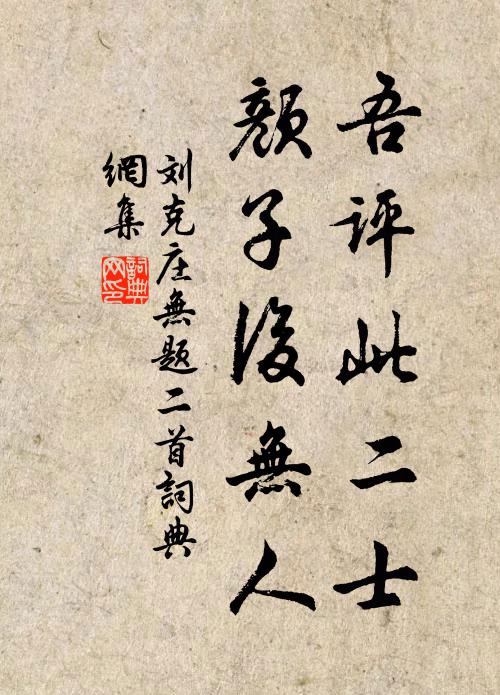 吾評此二士
顏子後無人
刘克庄無題二首詞典
網集
詞典
网印